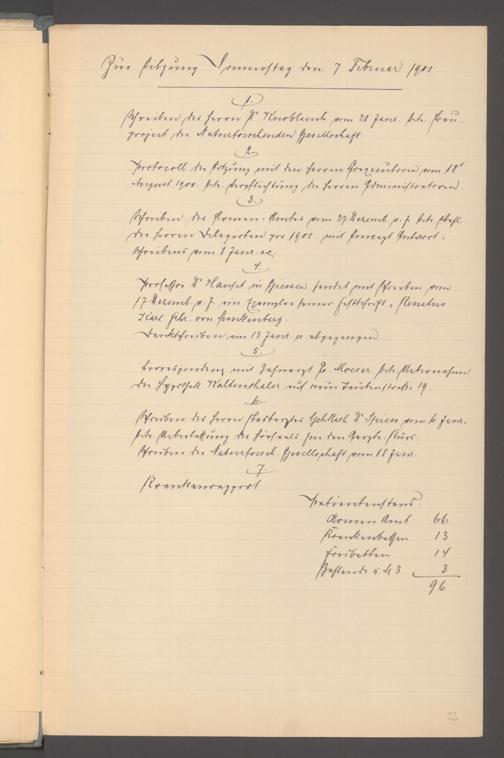 Zur Sitzung Donnerstag den 7 Februar 1901.
1.
Schreiben des Herrn Dr Knoblauch vom 21 Janr. betr. Bau-
project der Naturforschenden Gesellschaft.
2.
Protocoll der Sitzung mit den Herrn vom 18t
August 1900. betr. Verpflichtung des Herrn Administratoren.
3.
Schreiben des Armen-Amtes vom 27 Dezemb. v. J. betr. Wahl
der Herren Delegirten pro 1901. mit Concept Antwort-
Schreibens vom 8 Janr. ac.
4.
Professor Dr in Giessen sendet mit Schreiben vom
17 Dezemb. v. J. ein Exemplar seiner Festschrift, Renatus
Karl Frhr. von Senckenberg.
Dankschreiben am 13 Janr. abgegangen.
5.
Correspondenz mit Zahnarzt Jo Moeser betr. Uebernahme
der Hypothek auf sein Haus 19.
6.
Schreiben des Herrn Stadtarztes Geh. Dr Spiess vom 6 Janr.
betr. Ueberlassung des Hörsaals
Schreiben der Naturforsch. Gesellschaft vom 18 Janr.
7.
Krankenrapport
Patientenstand:
Armen Amt 66
Krankenkassen 13
Freibetten 14
Zahlende à M 3 3
96